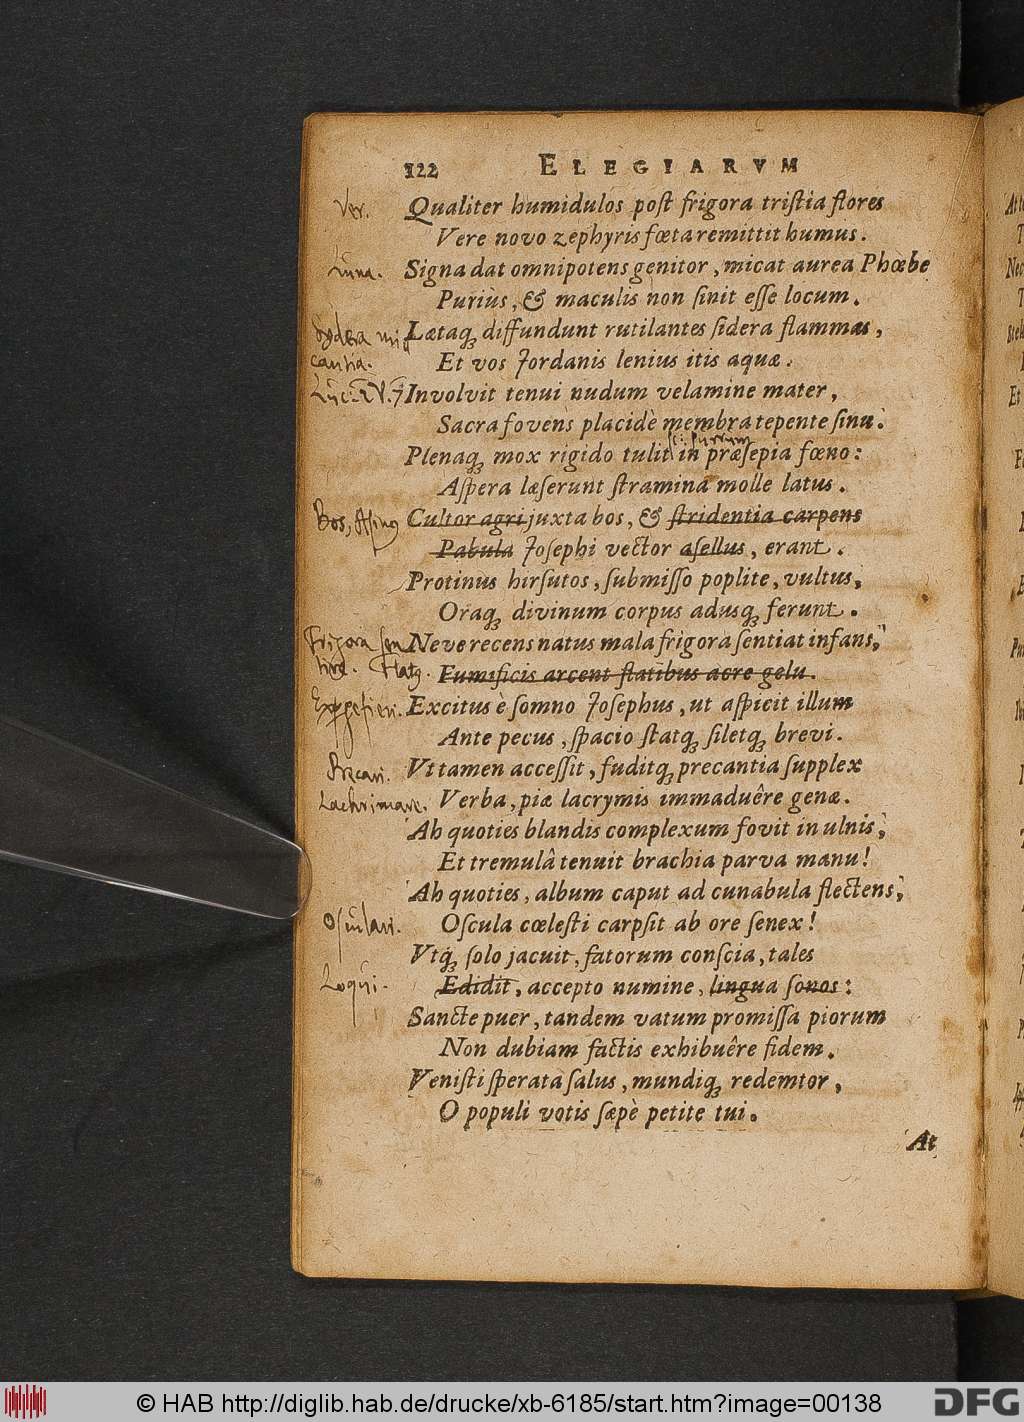 122 ELEGIARVM
Ver. Qualiter humidulos post frigora tristia flores
Vere novo zephyris fœta remittit humus.
Luna. Signa dat omnipotens genitor, micat aurea Phœbe
Puriùs, & maculis non sinit esse locum.
Sydera mi Lætaq; diffundunt rutilantes sidera flammas,
cantia. Et vos Jordanis lenius itis aquæ.
Involvit tenui nudum velamine mater,
Sacra fovens placidè membra tepente sinu.
Plenaq; mox rigido tulit in præsepia fœno:
Aspera læserunt stramina molle latus.
Bos, Asinus Cultor agri juxta bos, & stridentia carpens
Pabula Josephi vector asellus, erant.
Protinus hirsutos, submisso poplite, vultus,
Oraq; divinum corpus adusq; ferunt.
Frigora sen Neve recens natus mala frigora sentiat infans,
tire. Flatus. Fumificis arcent flatibus acre gelu.
Excitus è somno Josephus, ut aspicit illum
Ante pecus, spacio statq; siletq; brevi.
Precari. Vt tamen accessit, fuditq; precantia supplex
Lachrimare. Verba, piæ lacrymis immaduêre genæ.
Ah quoties blandis complexum fovit in ulnis,
Et tremulâ tenuit brachia parva manu!
Ah quoties, album caput ad cunabula flectens,
Osculari. Oscula cœlesti carpsit ab ore senex!
Vtq; solo jacuit, fatorum conscia, tales
Loqui. Edidit, accepto numine, lingua sonos:
Sancte puer, tandem vatum promissa piorum
Non dubiam factis exhibuêre fidem.
Venisti sperata salus, mundiq; redemtor,
O populi votis sæpè petite tui.
At
© HAB http://diglib.hab.de/drucke/xb-6185/start.htm?image=00138
DFG